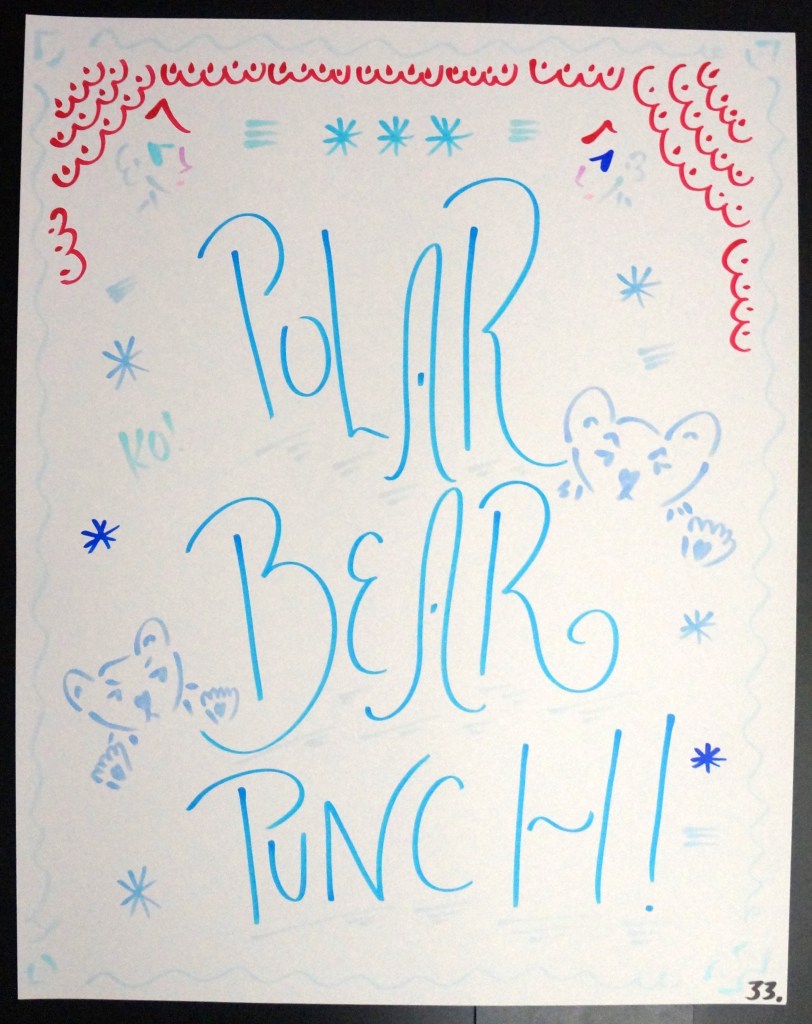 POLAR
KO'
BEAR
PUNCH!
33.